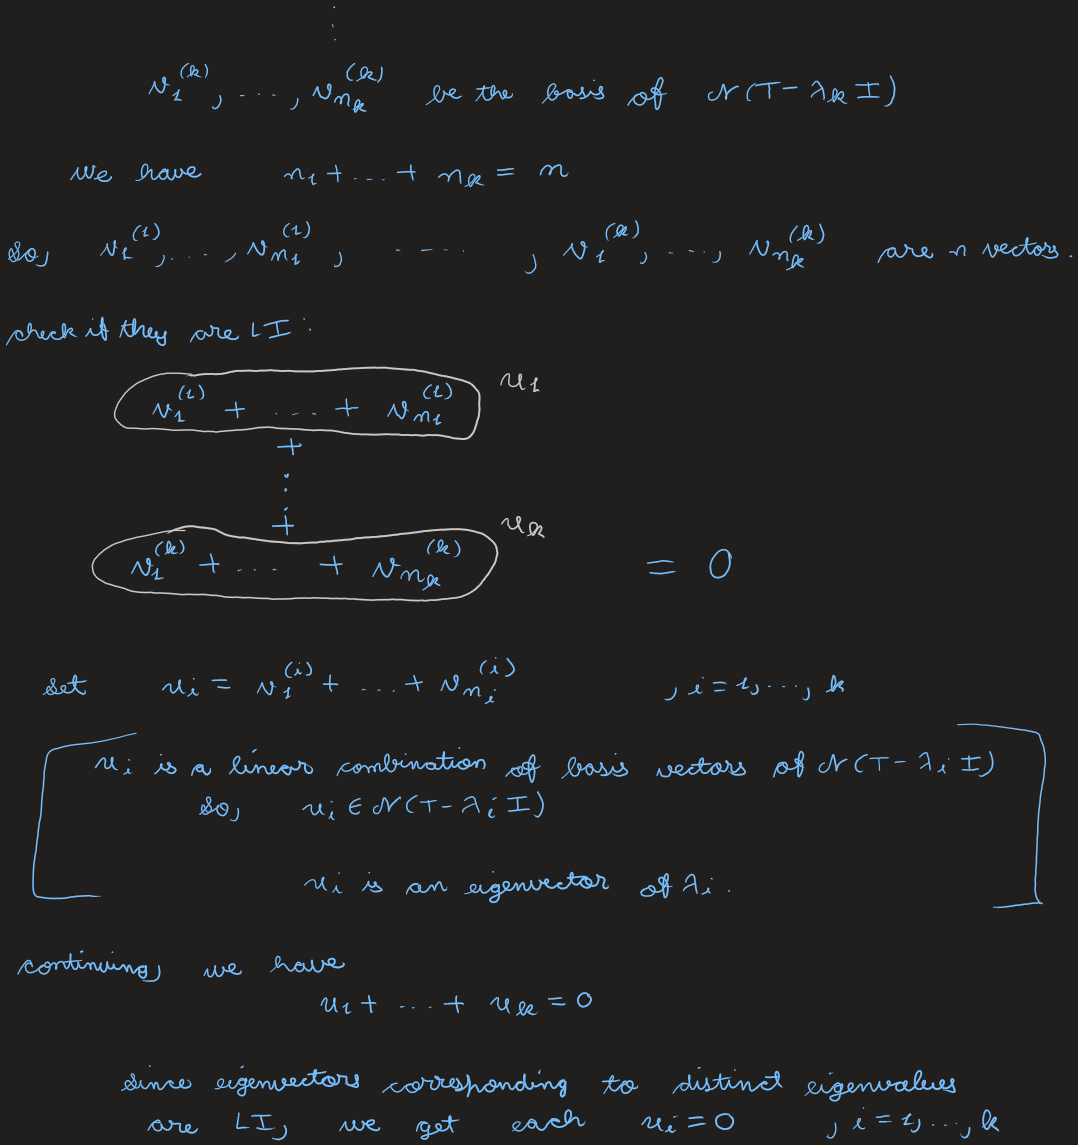 ⋮
v₁⁽ᵏ⁾, ..., v_{n_k}⁽ᵏ⁾ be the basis of 𝒩(T - λ_k I)
we have n₁ + ... + n_k = n
so, v₁⁽¹⁾, ..., v_{n₁}⁽¹⁾, ...., v₁⁽ᵏ⁾, ..., v_{n_k}⁽ᵏ⁾ are n vectors.
check if they are LI:
v₁⁽¹⁾ + ... + v_{n₁}⁽¹⁾ u₁
+
⋮
+
v₁⁽ᵏ⁾ + ... + v_{n_k}⁽ᵏ⁾ u_k = 0
set u_i = v₁⁽ⁱ⁾ + ... + v_{n_i}⁽ⁱ⁾ , i = 1, ..., k
u_i is a linear combination of basis vectors of 𝒩(T - λ_i I)
so, u_i ∈ 𝒩(T - λ_i I)
u_i is an eigenvector of λ_i.
continuing, we have
u₁ + ... + u_k = 0
since eigenvectors corresponding to distinct eigenvalues
are LI, we get each u_i = 0 , i = 1, ..., k